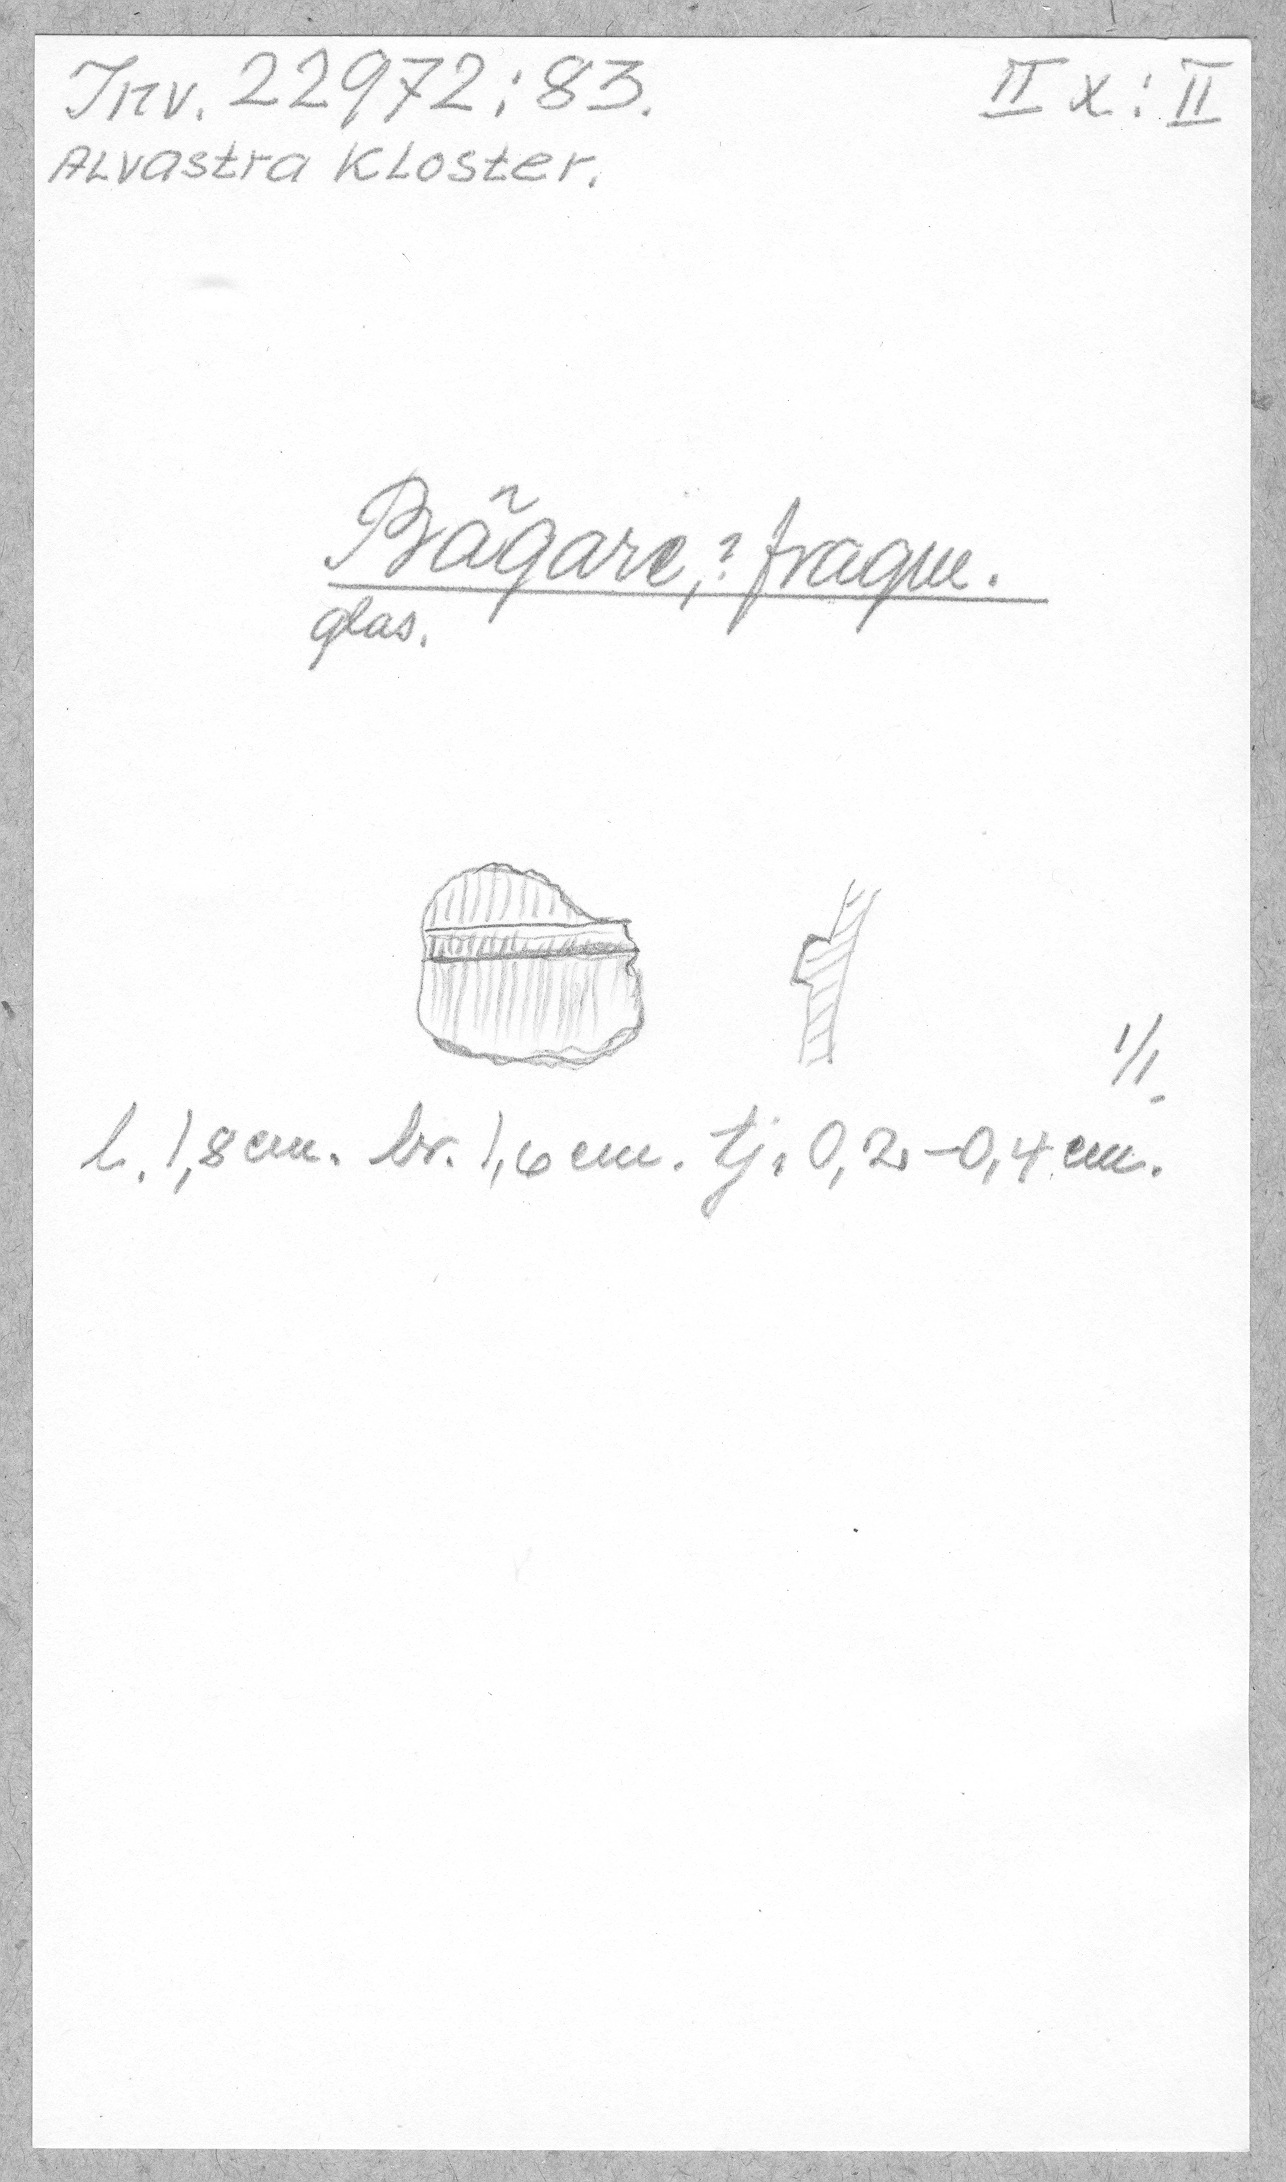 Inv. 22972:83. II x:II
Alvastra Kloster.
Bägare,? fragm.
glas.
1/1.
l. 1,8 cm. br. 1,6 cm. tj. 0,2-0,4 cm.